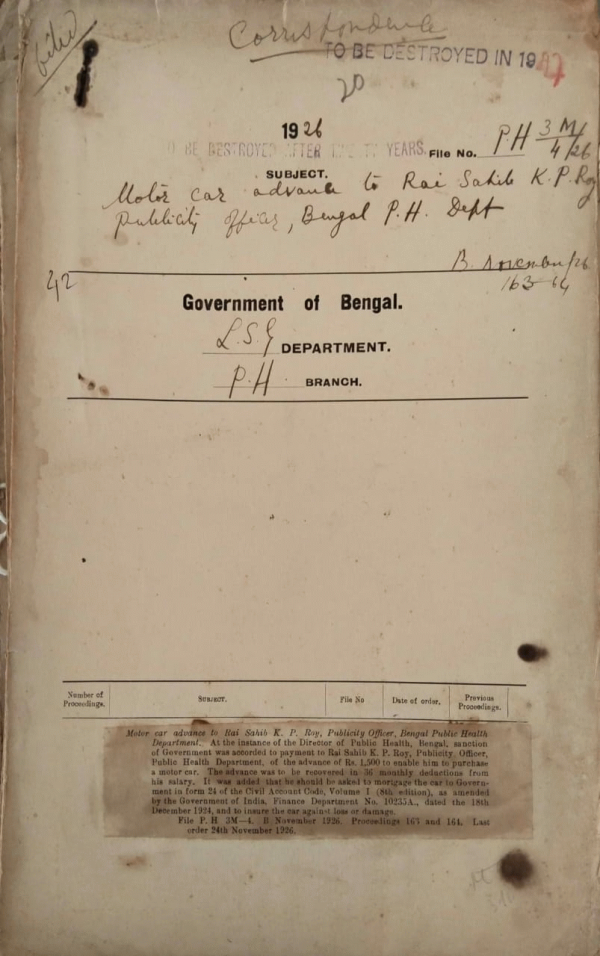 filed
Correspondence
TO BE DESTROYED IN 19
20
1926
BE DESTROYED AFTER YEARS.
File No. PH 3M/4/26
SUBJECT.
Motor car advance to Rai Sahib K. P. Roy
Publicity officer, Bengal P.H. Dept
B. November/26
163-64
42
Government of Bengal.
L.S.G DEPARTMENT.
P.H. BRANCH.
Number of Proceedings.
SUBJECT.
File No
Date of order.
Previous Proceedings.
Motor car advance to Rai Sahib K. P. Roy, Publicity Officer, Bengal Public Health
Department. At the instance of the Director of Public Health, Bengal, sanction
of Government was accorded to payment to Rai Sahib K. P. Roy, Publicity Officer,
Public Health Department, of the advance of Rs. 1,500 to enable him to purchase
a motor car. The advance was to be recovered in 36 monthly deductions from
his salary. It was added that he should be asked to mortgage the car to Govern-
ment in form 24 of the Civil Account Code, Volume I (8th edition), as amended
by the Government of India, Finance Department No. 10235A., dated the 18th
December 1924, and to insure the car against loss or damage.
File P. H. 3M—4. B November 1926. Proceedings 163 and 164. Last
order 24th November 1926.